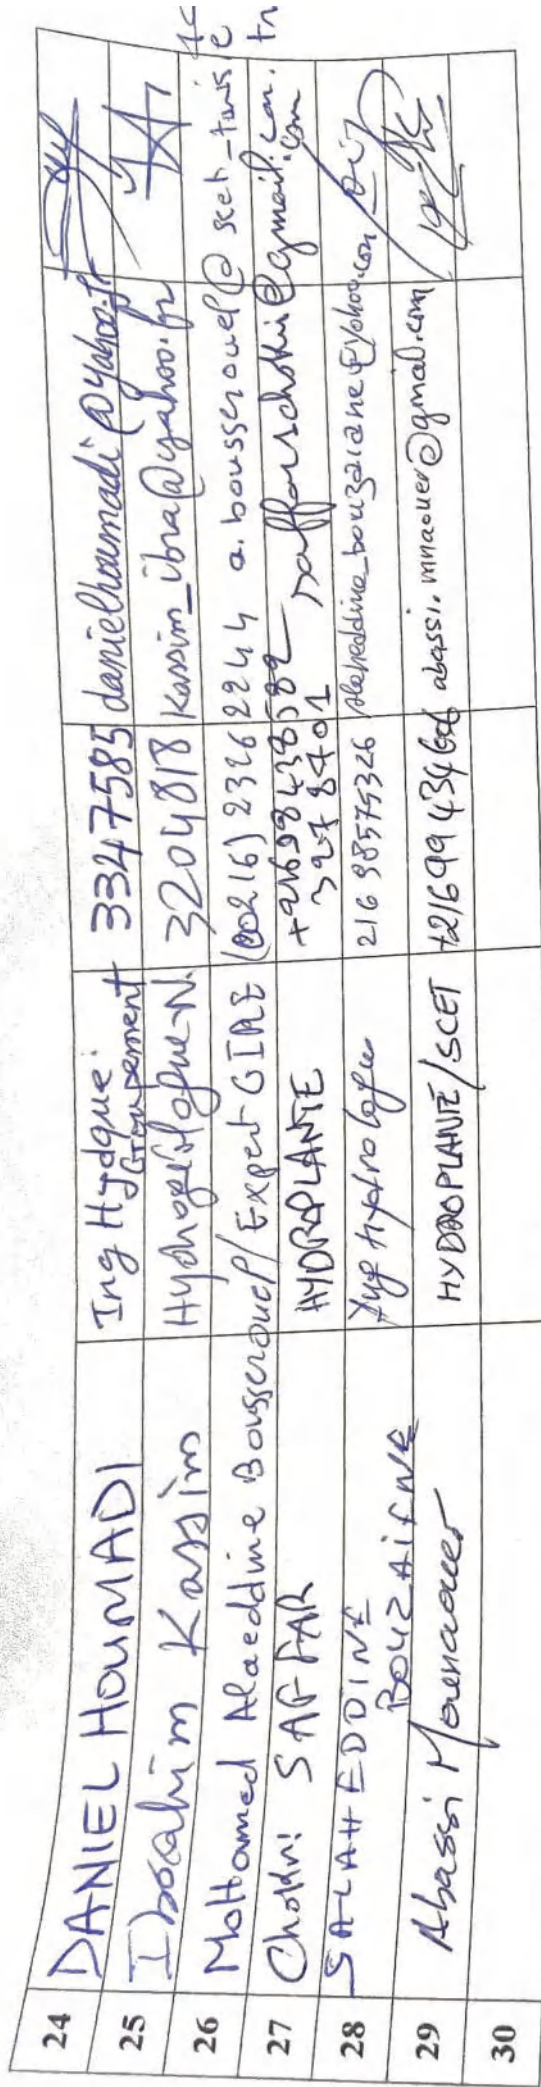 24 DANIEL HOUMADI Ing Hydqué Groupement 3347585 danielhoumadi@yahoo.fr
25 Ibrahim Kassim Hydrogéologue N. 3204818 Kassim_ibra@yahoo.fr
26 Mohamed Alaeddine Bousseroued / Expert GIRE (00216) 23262244 a.bousseroued@scet-tunisie
27 Chokri SAFFAR HYDROPLANTE +21698438582 3278401 saffarschokri@gmail.com
28 SALAHEDDINE BOUZAIENE 216 98575326 Salaheddine_bouzaiane@yahoo.com
29 Abassi Mounaouer HYDROPLANTE/SCET +216 99 434 abassi.mnaouer@gmail.com
30